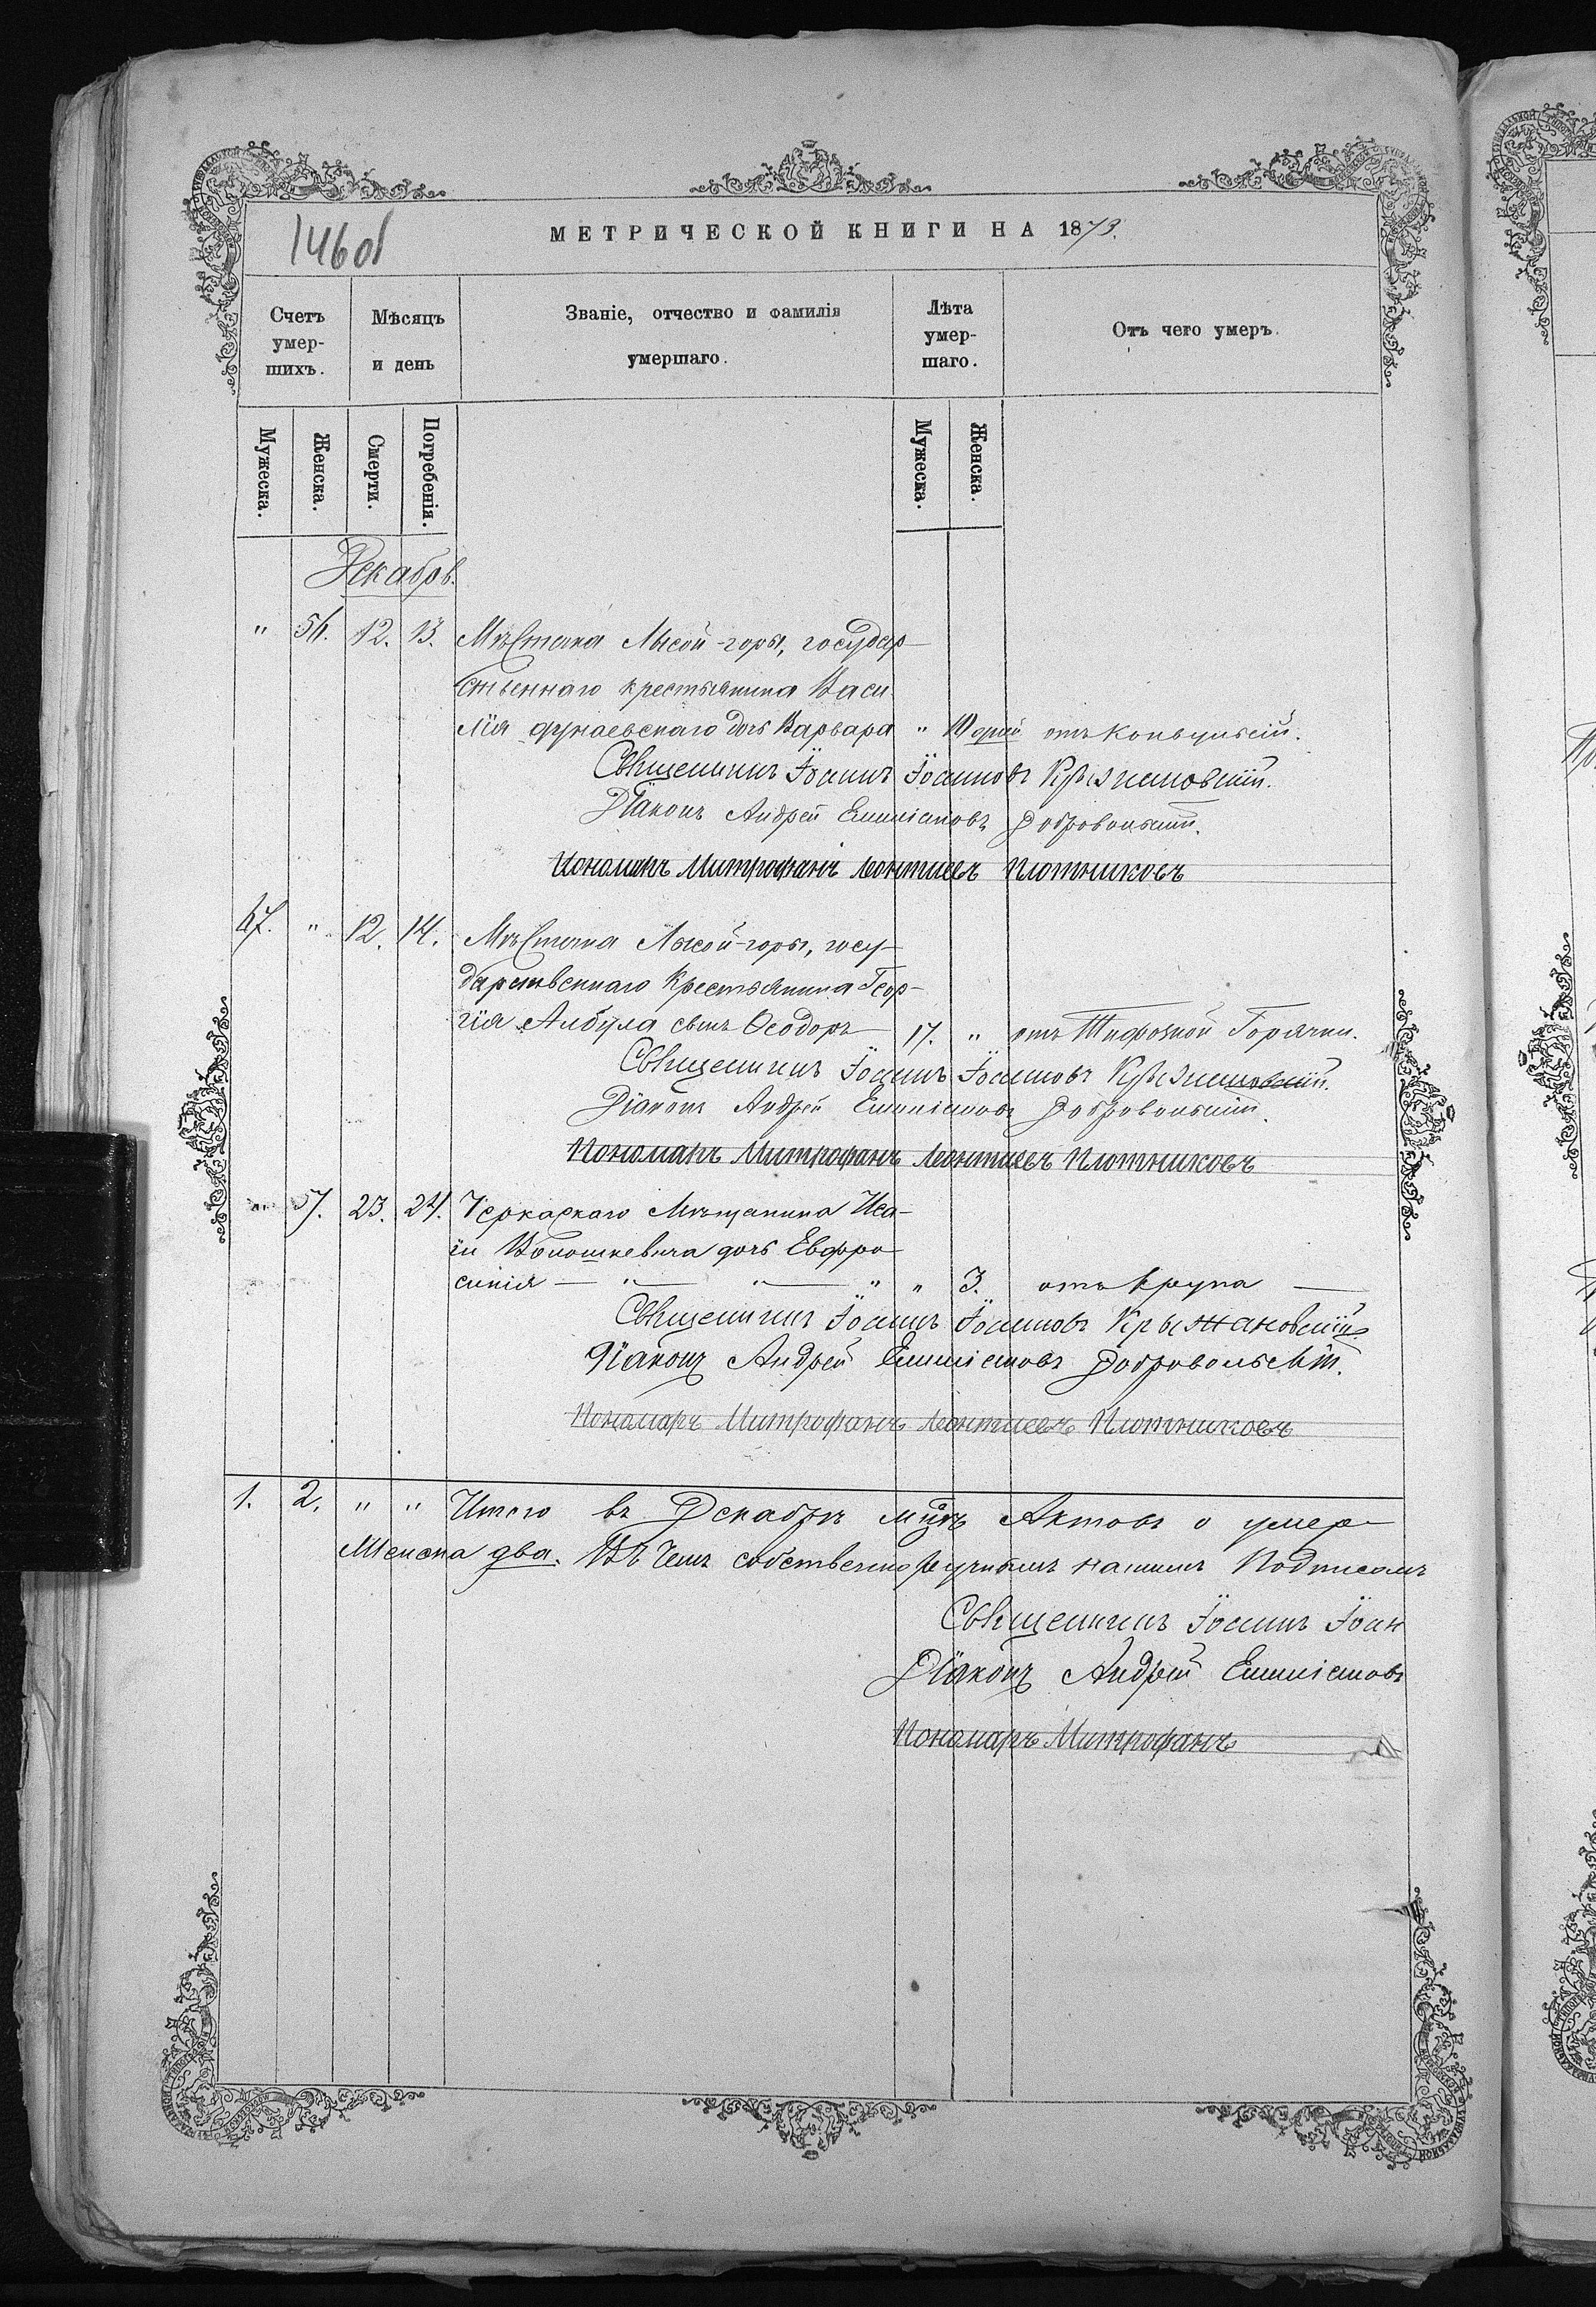 146об
МЕТРИЧЕСКОЙ КНИГИ НА 1873.
Счетъ умер-
шихъ.
Мѣсяцъ
и день
Званіе, отчество и фамилія
умершаго.
Лѣта
умер-
шаго.
Отъ чего умеръ.
Мужеска.
Женска.
Смерти.
Погребенія.
Мужеска.
Женска.
Декабрь.
" 56. 12. 13. Мѣстечка Лысой-горы, государ-
ственнаго крестьянина Васи
лія Дунаевскаго дочь Варвара " отъ Конвульсій.
Священникъ Іоаннъ Іоанновъ Крыжановскій.
Діаконъ Андрей Емиліановъ Добровольскій.
Пономарь Митрофанъ Леонтиевъ Плотниковъ
67. " 12. 14. Мѣстечка Лысой-горы, госу-
дарственнаго Крестьянина Геор-
гія Албула сынъ Ѳеодоръ 17. " отъ Тифозной Горячки.
Священникъ Іоаннъ Іоанновъ Крыжановскій.
Діаконъ Андрей Емиліановъ Добровольскій.
Пономарь Митрофанъ Леонтиевъ Плотниковъ
57. 23. 24. Черкаскаго Мѣщанина Иса-
іи Волошкевича дочь Евфро
синія — " — " — " " 3. отъ Крупа —
Священникъ Іоаннъ Іоанновъ Крыжановскій
Діаконъ Андрей Емиліановъ Добровольскій.
Пономарь Митрофанъ Леонтиевъ Плотниковъ
1. 2. " " Итого въ Декабрѣ мцѣ Актовъ о умер-
Женска два. Въ чемъ собственноручнымъ нашимъ Подписомъ
Священникъ Іоаннъ Іоан
Діаконъ Андрей Емиліановъ
Пономарь Митрофанъ